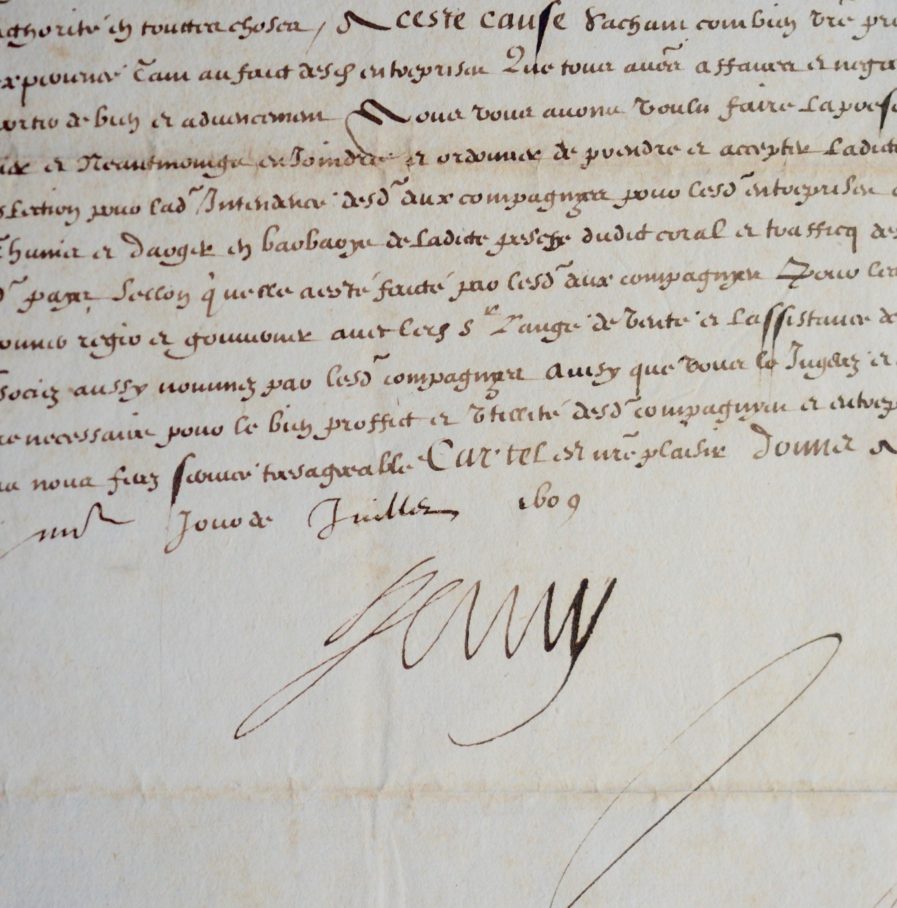 authorité en touttes choses / A ceste cause sachant combien vre pre
experience tant au faict desd entreprises Que tous autres affaires et nego
sortie de bien et advencement Nous vous avons voulu faire la prese
et Neantmoings enJoindre et ordonner de prendre et accepter Ladicte
slection pour lad Intendence desd deux compagnyes pour lesd entreprises
Thunis et d'alger en barbarye de ladicte pesche dudict coral et trafficq des
d pays sellon q'uelle a esté faicte par lesd deux compagnyes Pour les
regir et gouverner avec les sr L'ange de Vente et L'assistance de
ssociez aussy nommez par lesd compagnyes Ainsy que vous le Jugerez
re necessaire pour le bien proffict et Utillité desd compagnyes et entrep
nous ferez service tresagreable Car tel est nre plaisir Donné
Jour de Juillet 1609
Henry